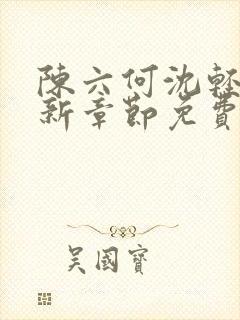 陳六何沈輕
新章節免費
吳國寶